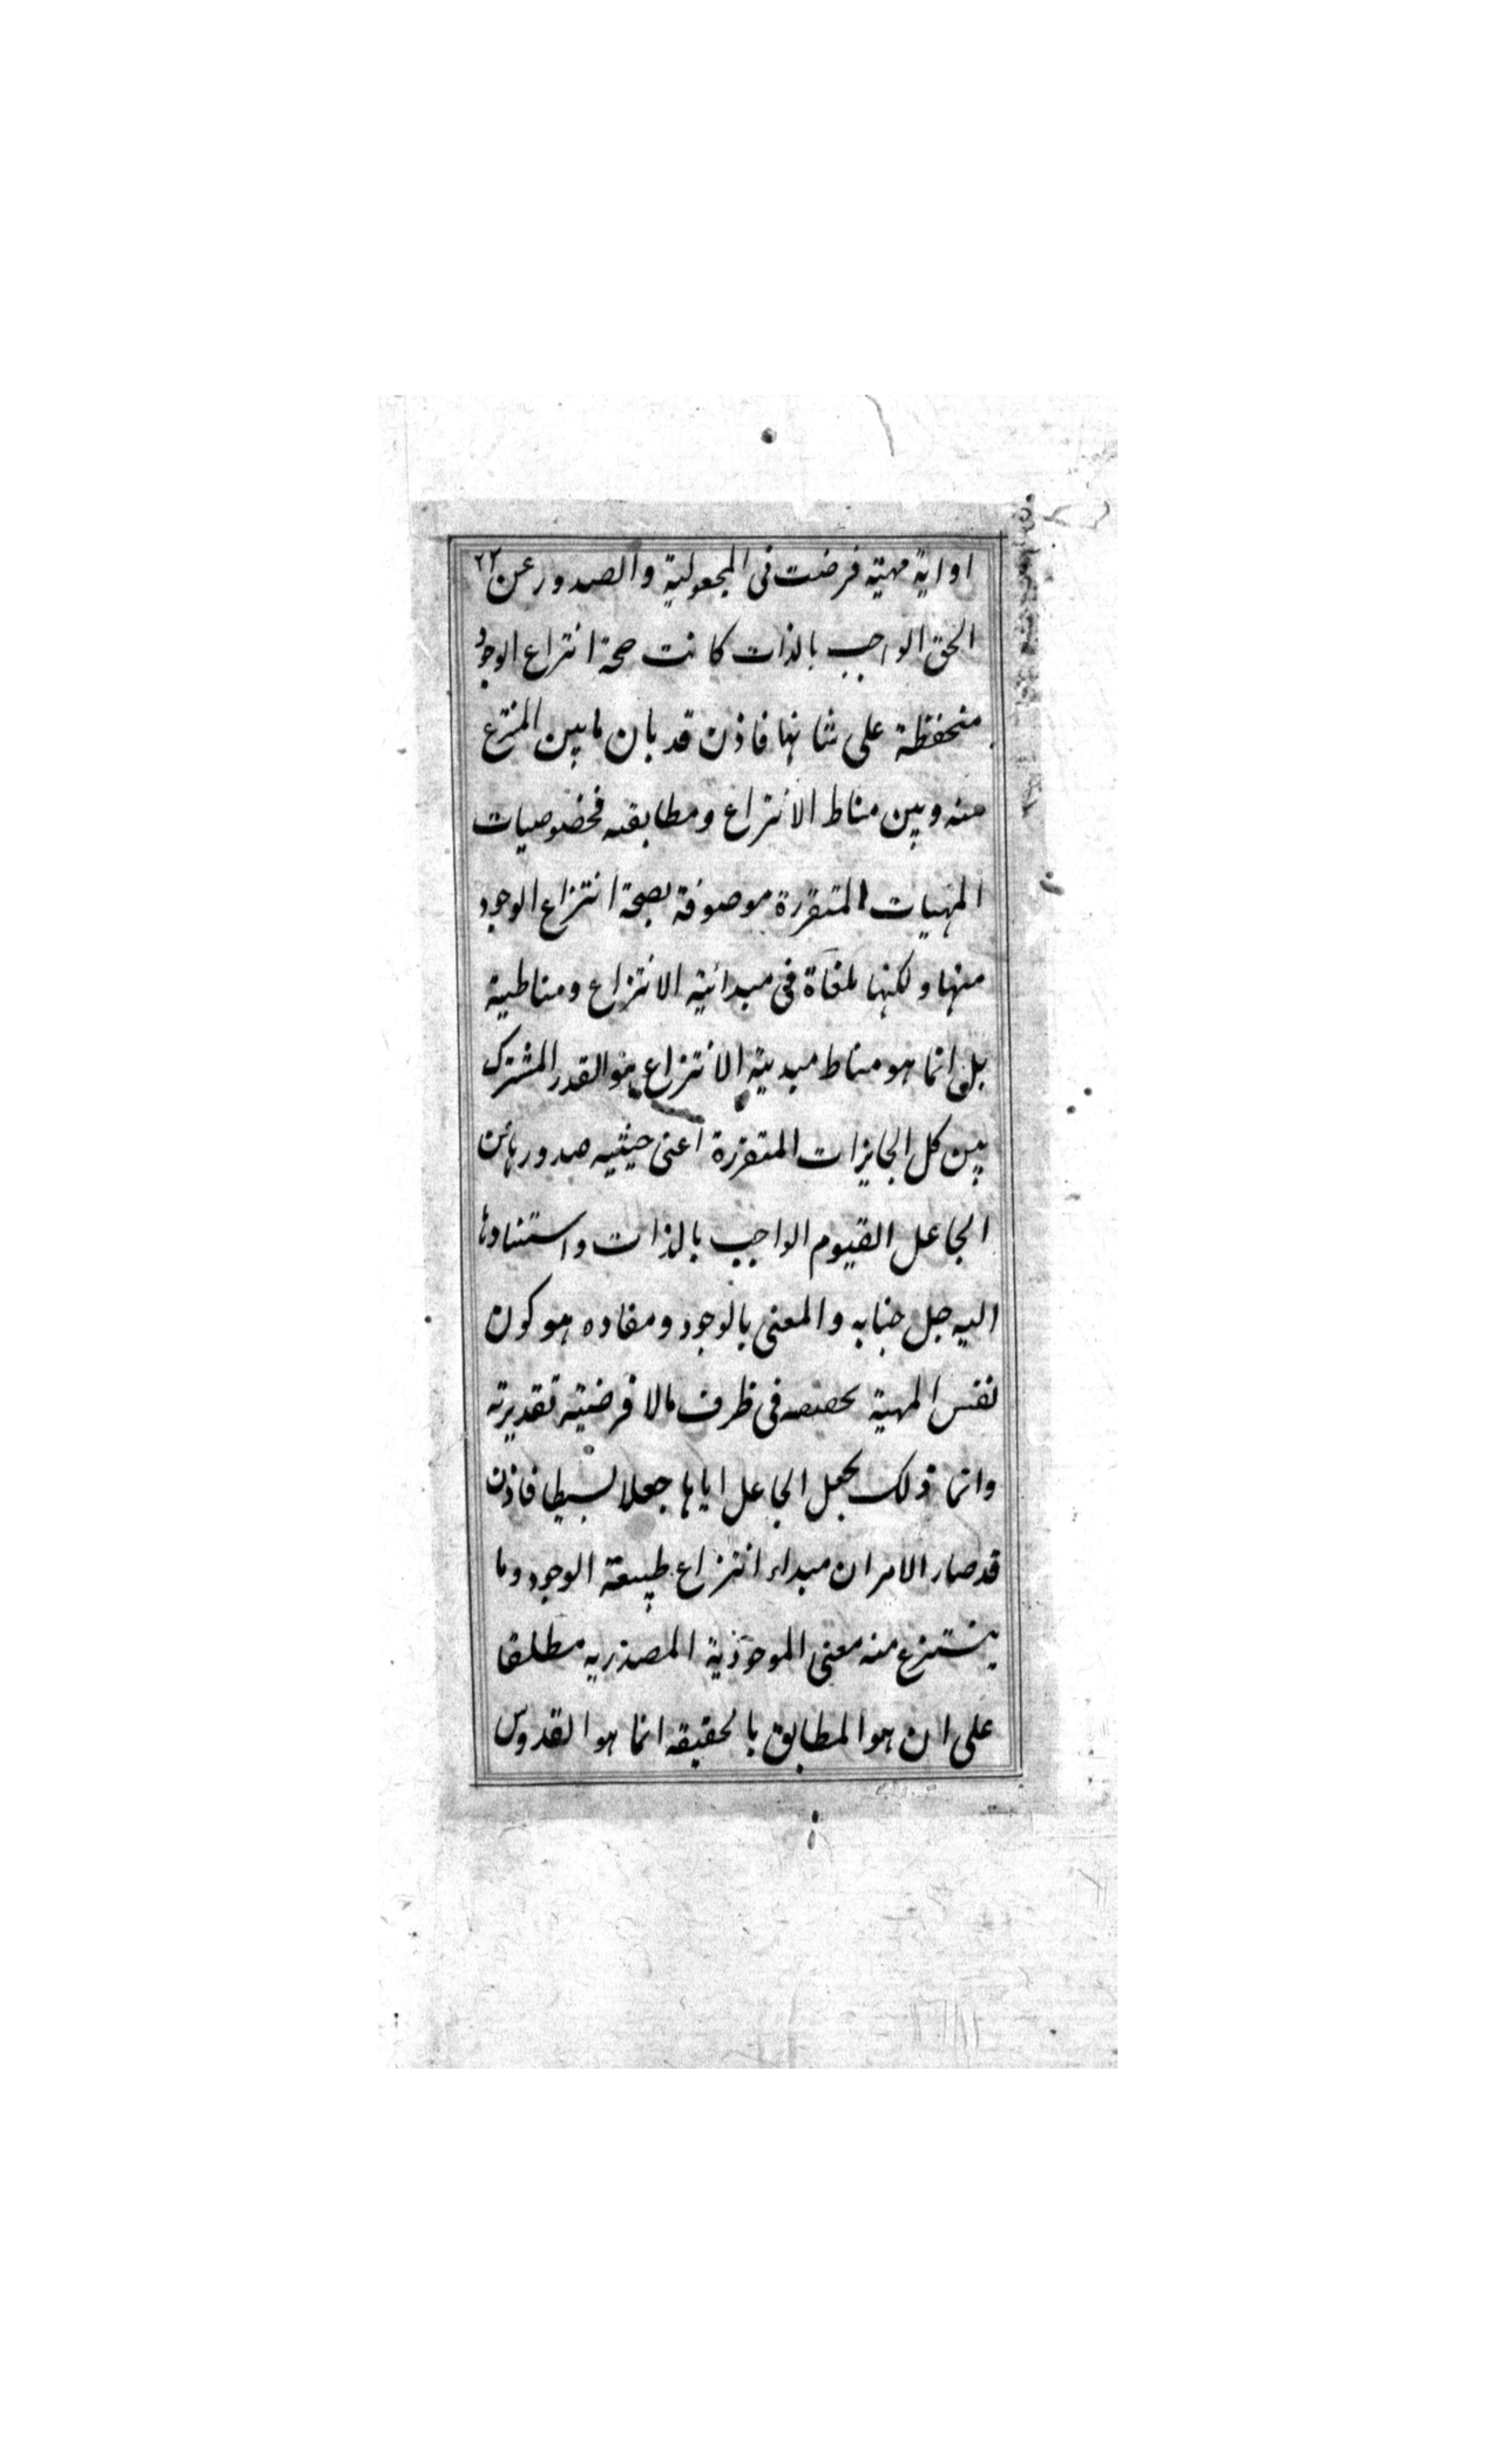 او اية مهية فرضت فى المجعولية والصدور عن ٢٢
الحق الواجب بالذات كانت صحة انتزاع الوجود
منحفظة على شانها فاذن قد بان ما بين المنتزع
منه وبين مناط الانتزاع ومطابقه فخصوصيات
المهيات المتقررة موصوفة بصحة انتزاع الوجود
منها ولكنها ملغاة فى مبدائية الانتزاع ومناطية
بل انما هو مناط مبدئية الانتزاع هو القدر المشترك
بين كل الجايزات المتقررة اعنى حيثيه صدورها عن
الجاعل القيوم الواجب بالذات واستنادها
اليه جل جنابه والمعنى بالوجود ومفاده هو كون
نفس المهية فى ظرف ما لا فرضية تقديرية
وانما ذلك بجعل الجاعل اياها جعلا بسيطا فاذن
قد صار الامر ان مبداء انتزاع طبيعة الوجود وما
ينتزع منه معنى الموجودية المصدريه مطلقا
على ان هو المطابق بالحقيقه انما هو القدوس